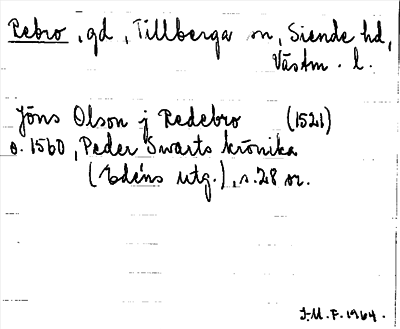 Rebro, gd, Tillberga sn, Siende hd,
Västm. l.
Jöns Olson j Redebro (1521)
o. 1560, Peder Swarts krönika
(Edéns utg.), s. 28 nr.
J.M.F. 1964.